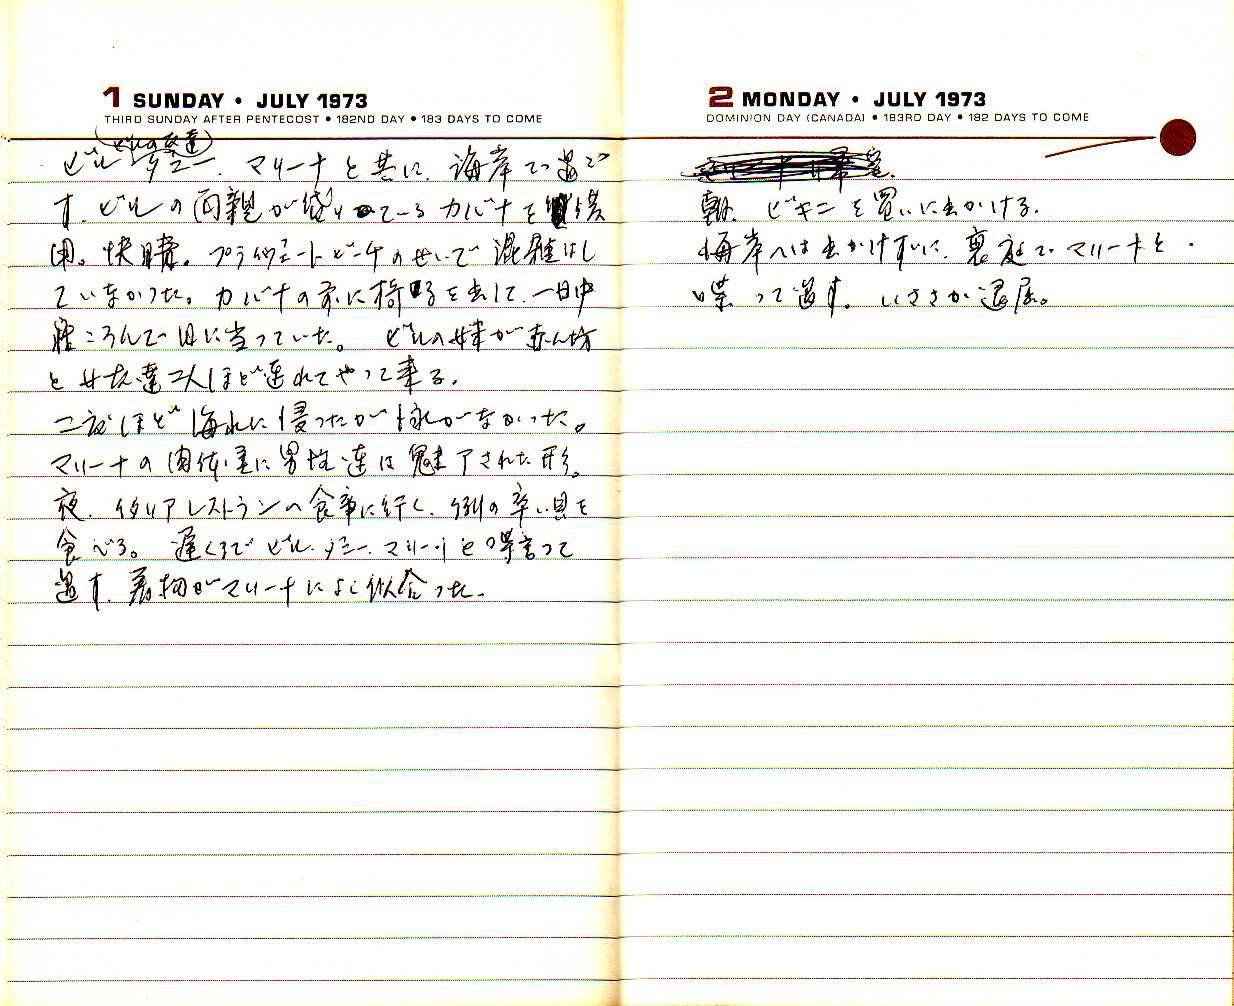 1 SUNDAY • JULY 1973
THIRD SUNDAY AFTER PENTECOST • 182ND DAY • 183 DAYS TO COME
(ビルの友達)
ビル、ダニー、マリーナと共に、海岸で過ご
す。ビルの両親が借りているカバナを使
用。快晴。プライヴェートビーチのせいで混雑はし
ていなかった。カバナの前に椅子を出して、一日中
寝ころんで日に当っていた。ビルの妹が赤ん坊
と女友達二人ほど連れてやって来る。
二度ほど海水に浸ったが泳がなかった。
マリーナの肉体美に男性達は魅了された形。
夜、イタリアレストランへ食事に行く、例の辛い貝を
食べる。遅くまでビル、ダニー、マリーナと喋って
過す。着物がマリーナによく似合った。
2 MONDAY • JULY 1973
DOMINION DAY (CANADA) • 183RD DAY • 182 DAYS TO COME
朝、ビキニを買いに出かける。
海岸へは出かけずに、裏庭でマリーナと
喋って過す。いささか退屈。